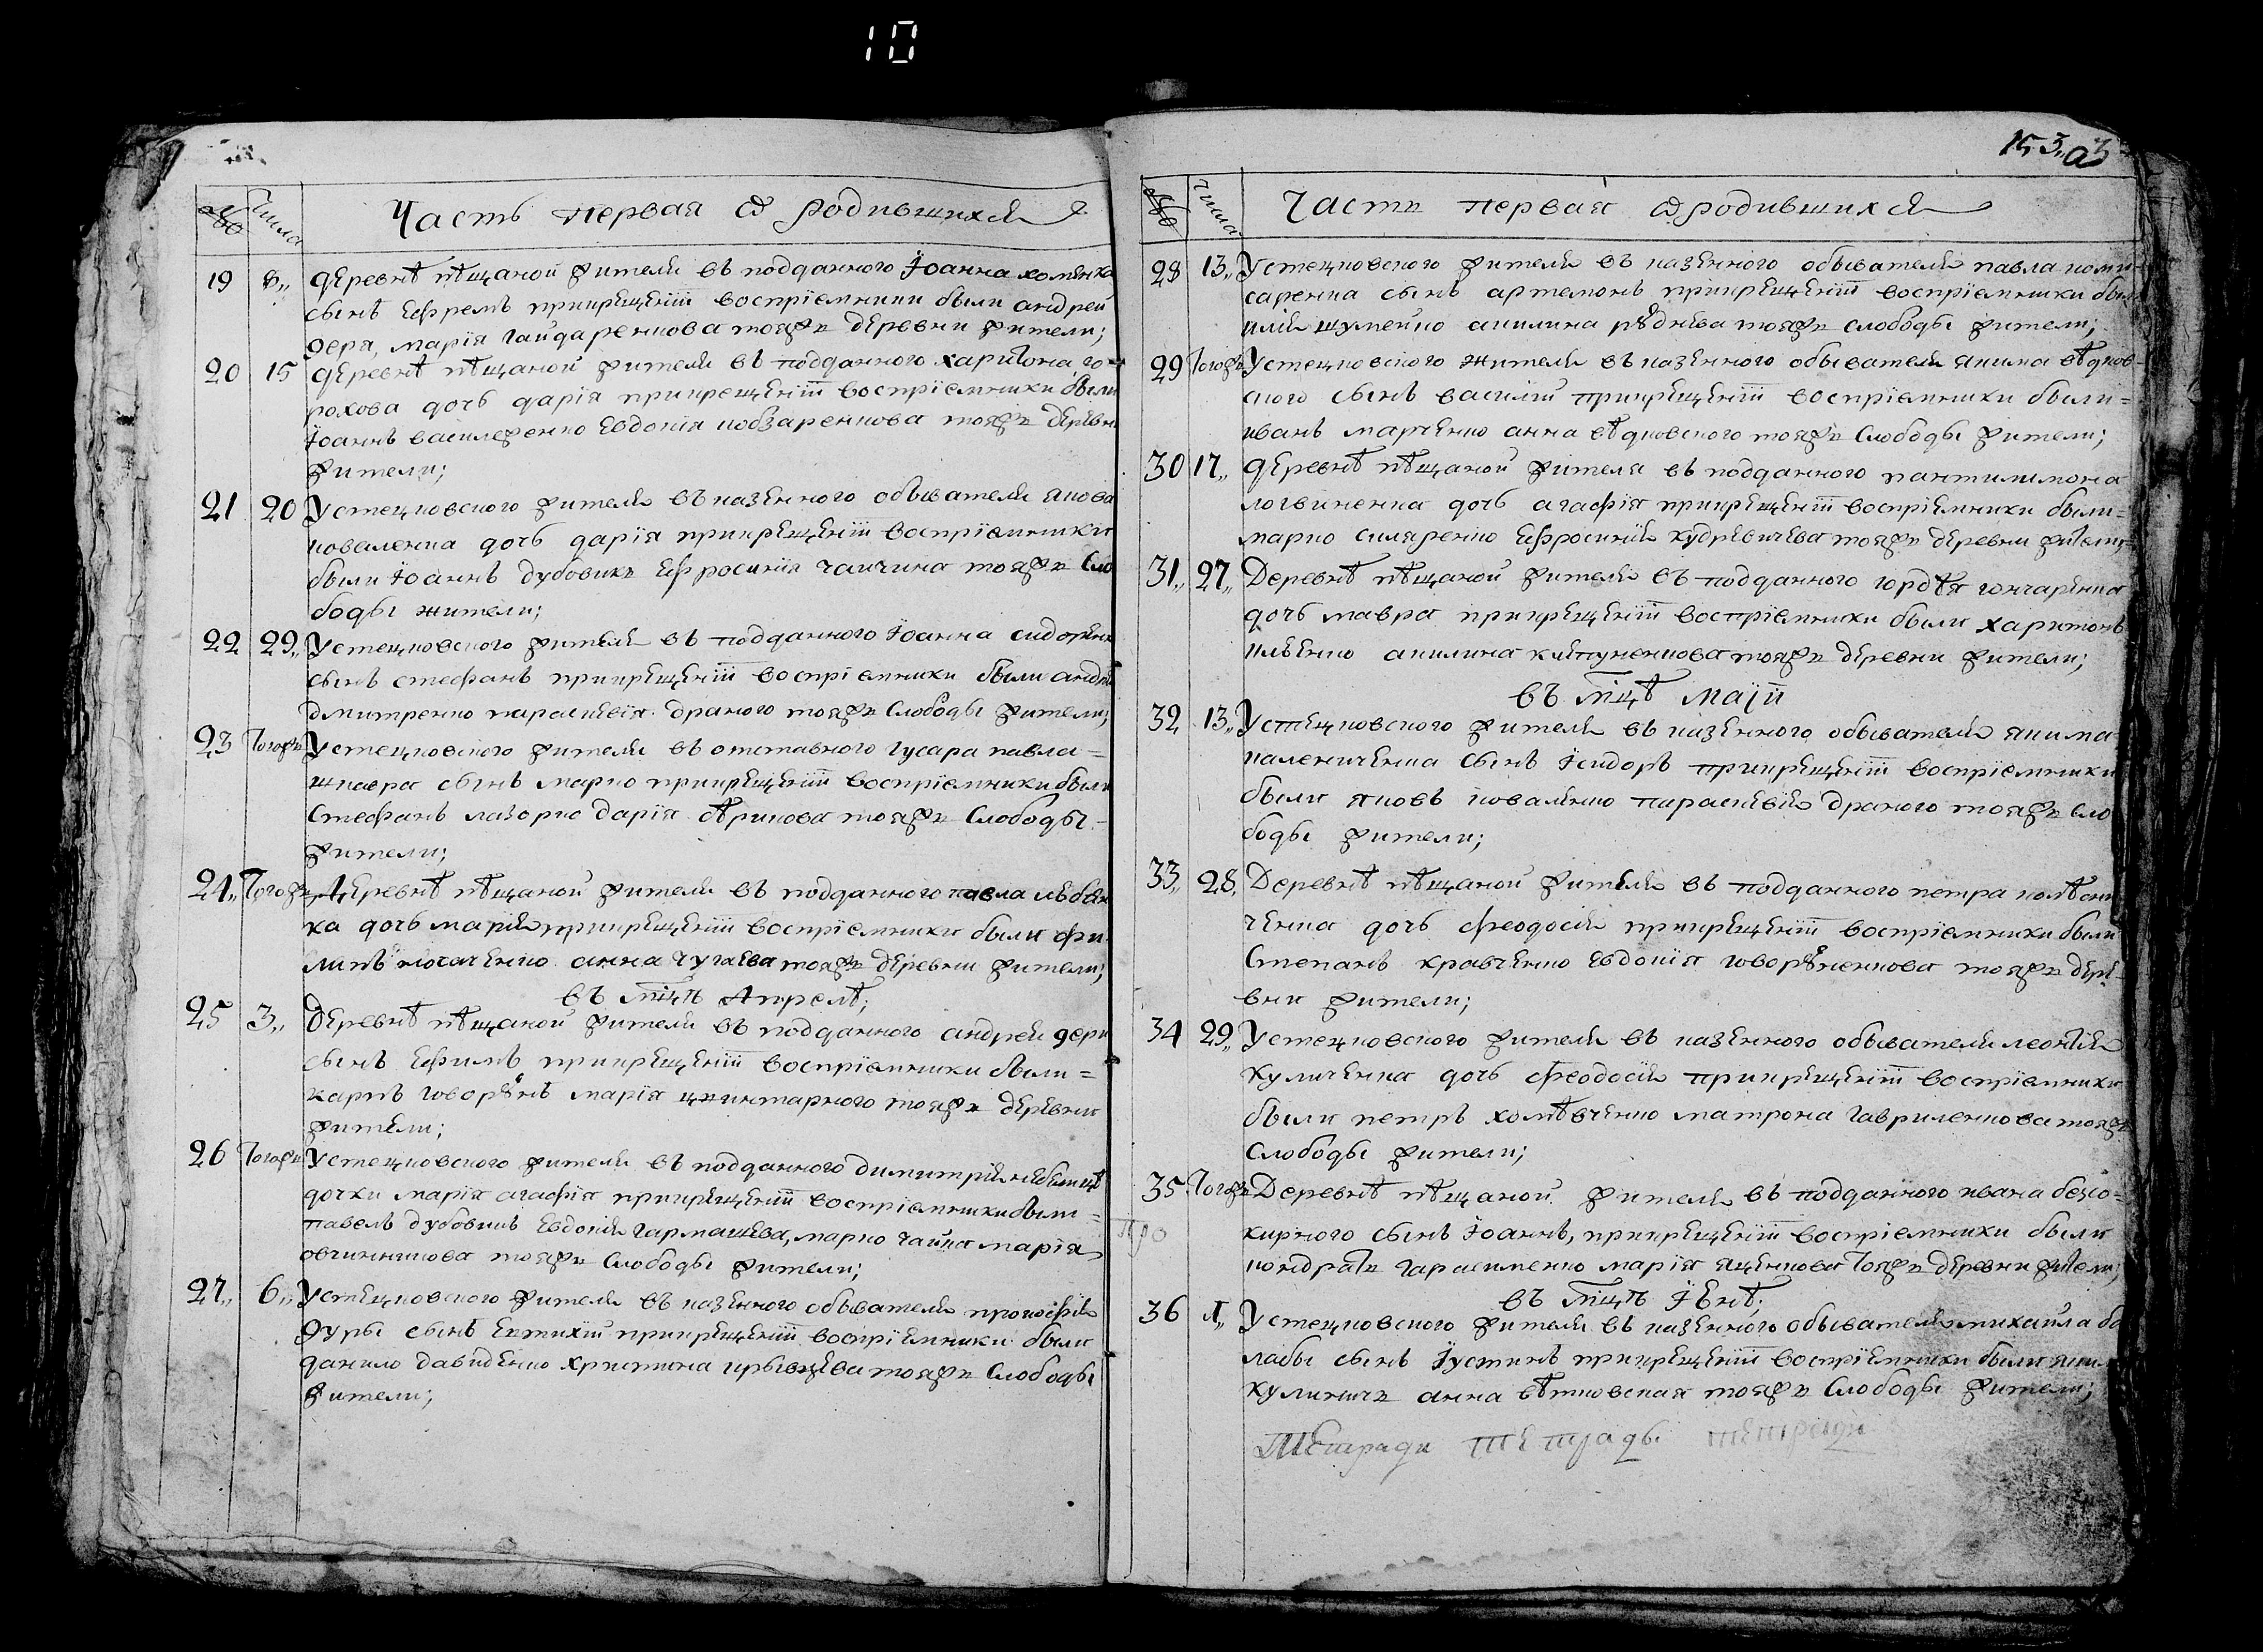 10
№ Числа Часть первая ѿ родившихся
19 8,, деревнѣ пѣщаной жителя въ подданного Іоанна хоменка
сынъ Ефремъ прикрещеніи воспріемники были андрей
дера, марія гайдаренкова тояжъ деревни жители;
20 15 деревнѣ пѣщаной жителя въ подданного харитона го-
рохова дочь дарія прикрещеніи воспріемники были
Іоаннъ василеженко Евдокія кобзаренкова тояжъ деревни
жители;
21 20 Устецковского жителя въ казенного обывателя якова
коваленка дочь дарія прикрещеніи воспріемники
были Іоаннъ дубовикъ Ефросинія чаичина тояжъ Сло
боды жители;
22 29,, Устецковского жителя въ подданного Іоанна сидоренк
сынъ стефанъ прикрещеніи воспріемники были андрей
дмитренко параскевія драного тояжъ Слободы жители;
23 Тогожъ Устецковского жителя въ отставного гусара павла-
шкавра сынъ марко прикрещеніи воспріемники были
Стефанъ лазорко дарія сѣрикова тояжъ Слободы-
жители;
24,, Тогожъ Деревнѣ пѣщаной жителя въ подданного павла
ка дочь марія прикрещеніи воспріемники были фи-
липъ анна чугаева тояжъ деревни жители;
въ мцѣ Апрелѣ;
25 3,, Деревнѣ пѣщаной жителя въ подданного андрея дери
сынъ Ефимъ прикрещеніи воспріемники были=
карпъ говорунъ марія цинтарного тояжъ деревни
жители;
26 Тогожъ Устецковского жителя въ подданного димитрія небилицѣ
дочки марія агафія прикрещеніи воспріемники были=
павелъ дубовикъ Евдокія гармашева, марко чайка марія
овчинникова тояжъ Слободы жители;
27,, 6,, Устецковского жителя въ казенного обывателя прокофія
дуры сынъ Евтихіи прикрещеніи воспріемники были
данило давиденко христина тояжъ Слободы
жители;
153,,
№ Числа Часть первая ѿ родившихся
28 13,, Устецковского жителя въ казенного обывателя павла коми-
саренка сынъ артемонъ прикрещеніи воспріемники были
илія шумейко акилина руднева тояжъ слободы жители;
29 Тогожъ Устецковского жителя въ казенного обывателя якима вѣдков-
ского сынъ василіи прикрещеніи воспріемники были=
иванъ марченко анна вѣдковского тояжъ Слободы жители;
30 17,, деревнѣ пѣщаной жителя въ подданного пантилимона
логвиненка дочь агафія прикрещеніи воспріемники были=
марко скляренко Ефросинія кудревичева тояжъ деревни жители;
31,, 27,, Деревнѣ пѣщаной жителя въ подданного гордѣя гончаренка
дочь мавра прикрещеніи воспріемники были харитонъ
ильенко акилина тояжъ деревни жители;
въ мцѣ маіи
32 13,, Устецковского жителя въ казенного обывателя якима
палениченка сынъ Ісидоръ прикрещеніи воспріемники
были яковъ коваленко параскевія драного тояжъ сло
боды жители;
33,, 28, Деревнѣ пѣщаной жителя въ подданного петра колѣсни
ченка дочь феодосія прикрещеніи воспріемники были
Степанъ кравченко Евдокія говоруненкова тояжъ дере-
вни жители;
34 29,, Устецковского жителя въ казенного обывателя леонтія
куличенка дочь феодосія прикрещеніи воспріемники
были петръ холѣвченко матрона гавриленкова тояжъ
Слободы жители;
35 Тогожъ Деревнѣ пѣщаной жителя въ подданного ивана безко-
кирного сынъ Іоаннъ, прикрещеніи воспріемники были
кондратъ гарасименко марія яценкова тояжъ деревни жители;
про
въ мцѣ Іюнѣ;
36 Устецковского жителя въ казенного обывателя михаила ба
лабы сынъ Іустинъ прикрещеніи воспріемники были яким
куликичъ анна вѣтковская тояжъ Слободы жители;
Тетради тетрады тетради